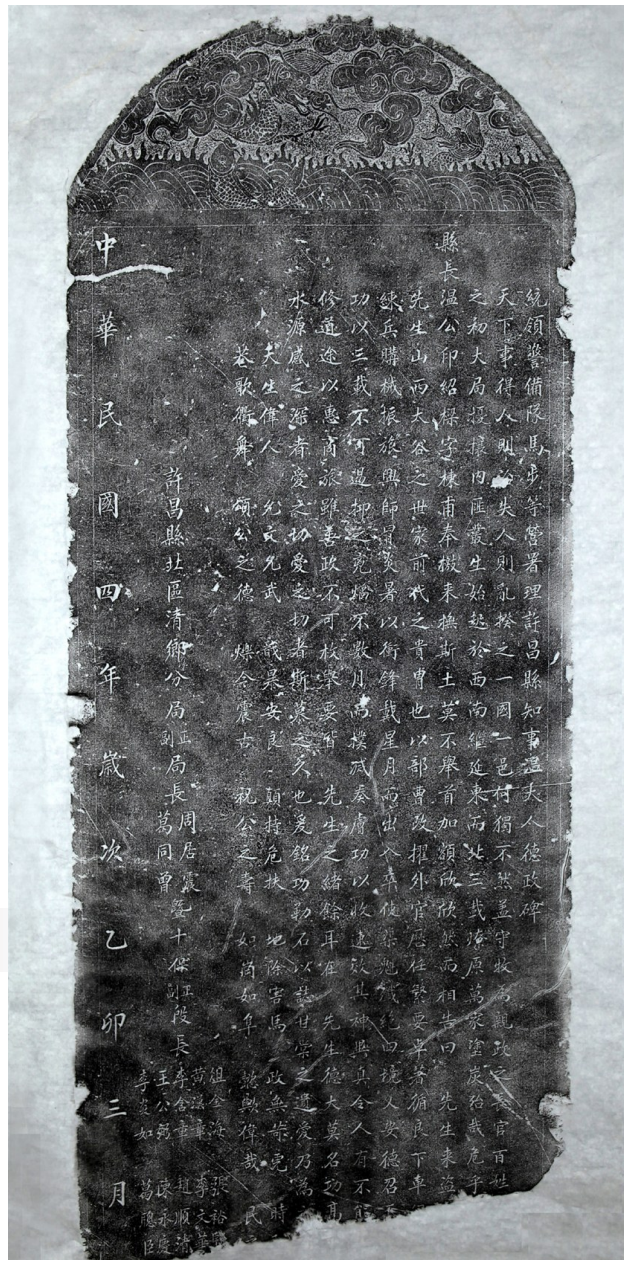 統領警備隊馬步等營署理許昌縣知事溫大人德政碑
天下事得人則治失人則亂揆之一國一邑何獨不然蓋守牧為親政之長官百姓
之初大局擾攘內匪叢生始起於西南繼延東而北三載燎原萬家塗炭殆哉危乎
縣長溫公印紹樑字棟甫奉檄來撫斯土莫不舉首加額欣欣然而相告曰 先生來蒞
先生山西太谷之世家前代之貴冑也以部曹改擢外官歷任繁要卓著循良下車
練兵購械振旅興師冒炎暑以衝鋒戴星月而出入卒使梟匪殲絕四境人安德召
功以三載不可遏抑之兇燄不數月而撲滅奏膚功以收速效其神與真令人有不能
修道途以惠商旅雖善政不可枚舉要皆 先生之緒餘耳在 先生德大莫名功高
水源感之深者愛之切愛之切者斯慕之久也爰銘功勒石以誌甘棠之遺愛乃為
天生偉人 允文允武 戢暴安良 顛持危扶 地除害馬 政無 時
巷歌衢舞 頌公之德 爍今震古 祝公之壽 如崗如阜 猗歟偉哉 民
許昌縣北區清鄉分局正副局長周居震葛同曾暨十保正副段長
張裕
李文華
李含章 趙順清
王公 陳永慶
李 如 葛聰臣
中華民國四年歲次乙卯三月